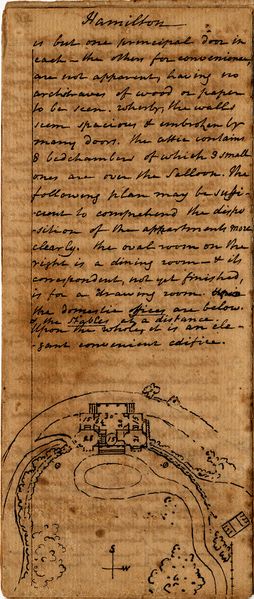 Hamilton
is but one principal door in
each – the others for convenience,
are not apparent, having no
architraves of wood or paper
to be seen. wherby, the walls
seem spacious & unbroken by
many doors. The attic contains
8 bedchambers of which 3 small
ones are over the Salloon. The
following plan may be suffi-
cient to comprehend the dispo
sition of the appartments more
clearly. the oval room on the
right is a dining room – & its
correspondent, not yet finished,
is for a drawing room.
the domestic offices are below.
& the Stables at a distance.
Upon the whole, it is an ele-
gant convenient edifice.
W